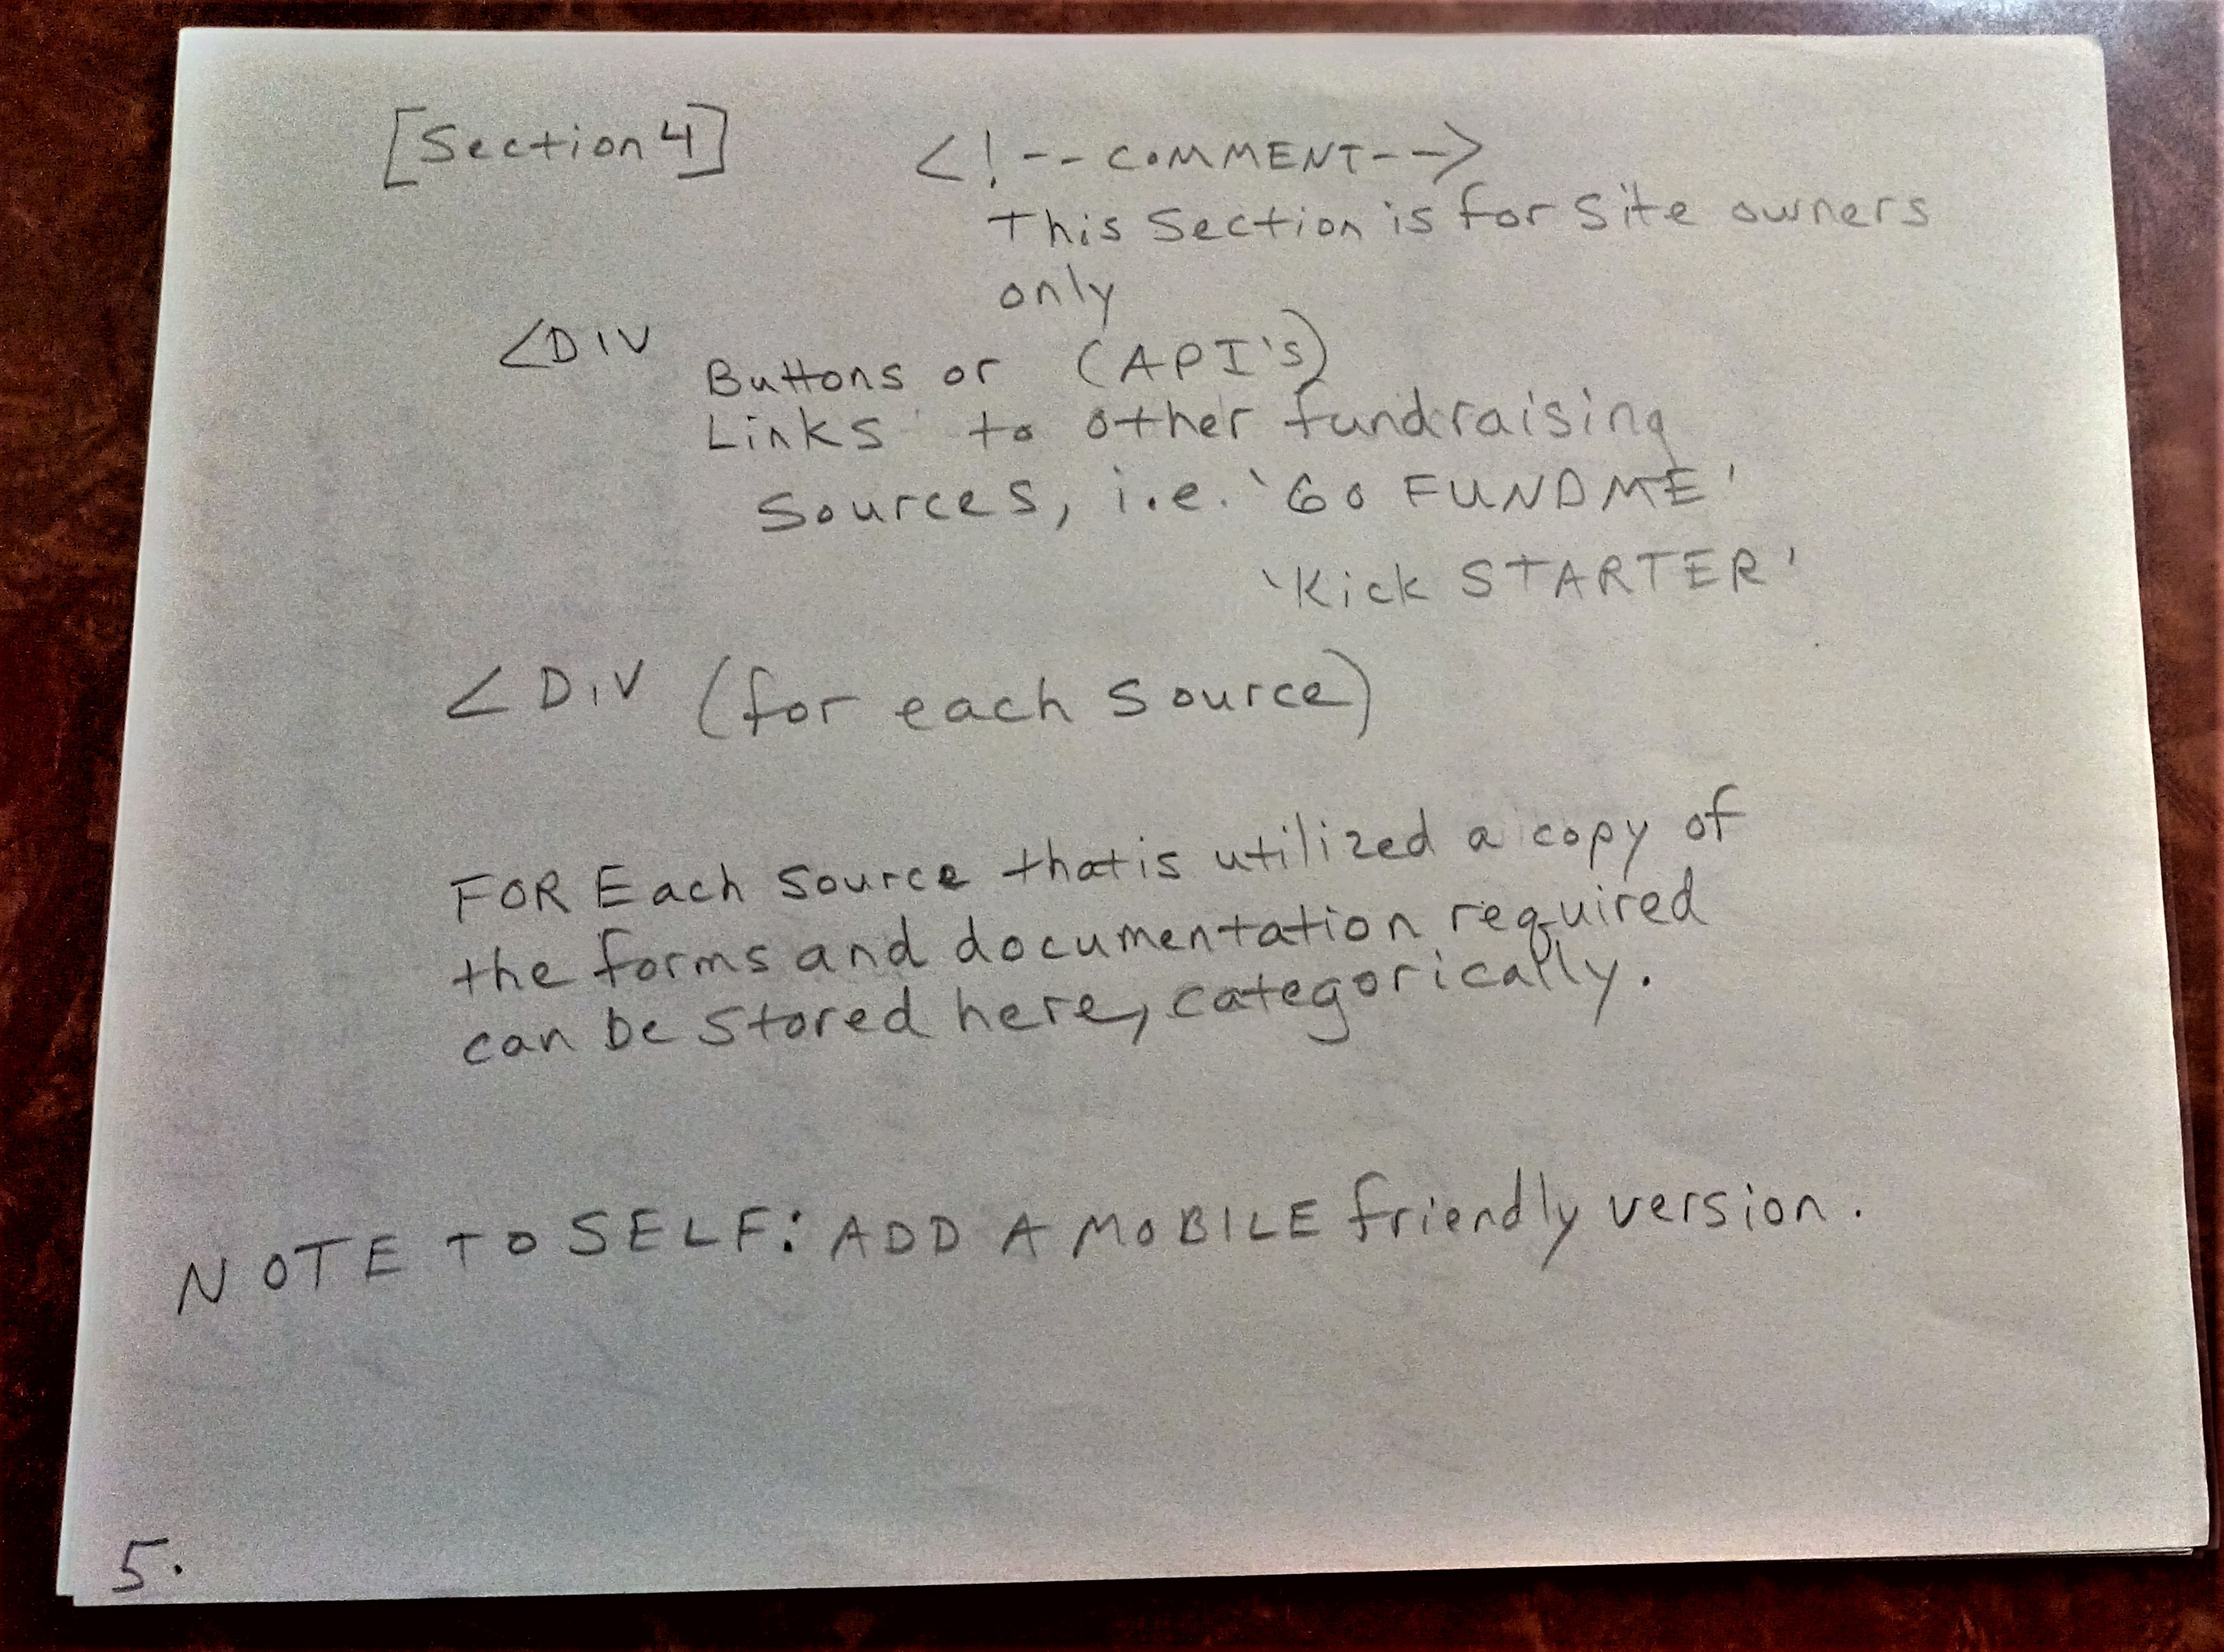 [Section 4] <!--COMMENT-->
This Section is for Site owners
only
<DIV
Buttons or (API's)
Links to other fundraising
Sources, i.e. 'GO FUNDME'
'Kick STARTER'
<DIV (for each source)
FOR Each source that is utilized a copy of
the forms and documentation required
can be stored here, categorically.
NOTE TO SELF: ADD A MOBILE friendly version.
5.